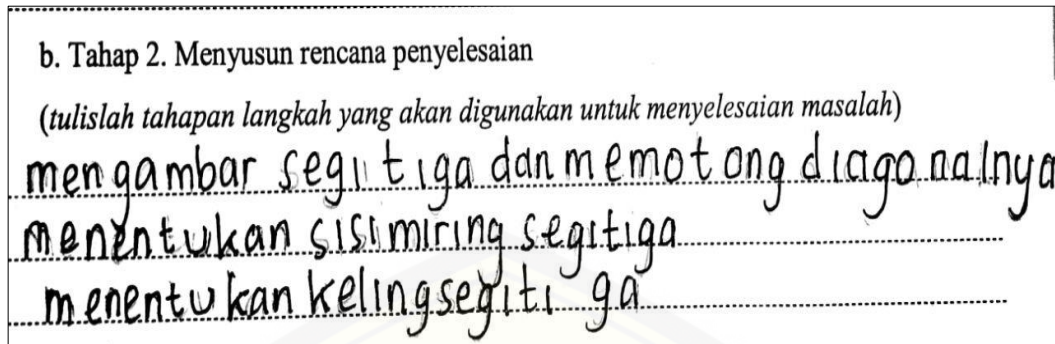 b. Tahap 2. Menyusun rencana penyelesaian
(tulislah tahapan langkah yang akan digunakan untuk menyelesaian masalah)
mengambar segitiga dan memotong diagonalnya
menentukan sisi miring segitiga
menentukan keling segitiga